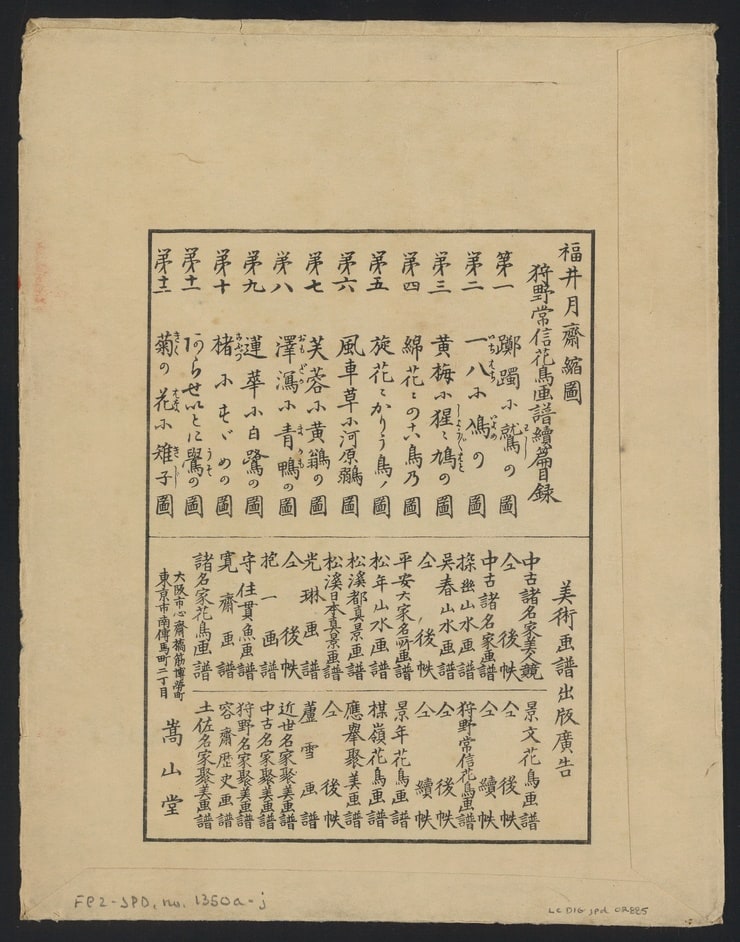 福井月齋縮圖
狩野常信花鳥画譜續篇目録
第一 躑躅小鷲の圖
第二 一八小鳩の圖
第三 黄梅小猩々鳩の圖
第四 綿花ニの古鳥乃圖
第五 旋花ニかりう鳥ノ圖
第六 風車草小河原鶸圖
第七 芙蓉小黄鶲の圖
第八 澤瀉小青鴨の圖
第九 蓮華小白鷺の圖
第十 楮小すゞめの圖
第十一 あらせいとに鷽の圖
第十二 菊の花小雉子圖
美術画譜出版廣告
中古諸名家美鏡
仝 後帙
中古諸名家画譜
探幽山水画譜
呉春山水画譜
仝 後帙
平安大家名所画譜
松年山水画譜
松溪都真景画譜
松溪日本真景画譜
光琳画譜
仝 後帙
抱一画譜
守住貫魚画譜
寛齋画譜
諸名家花鳥画譜
景文花鳥画譜
仝 後帙
仝 續帙
狩野常信花鳥画譜
仝 後帙
仝 續帙
景年花鳥画譜
楳嶺花鳥画譜
應擧聚美画譜
仝 後帙
蘆雪画譜
近世名家聚美画譜
中古名家聚美画譜
狩野名家聚美画譜
容齋歴史画譜
土佐名家聚美画譜
大阪市心齋橋筋博勞町
東京市南傳馬町二丁目
嵩山堂
FP2-JPD, no. 1350a-j
LC DIG jpd 02885